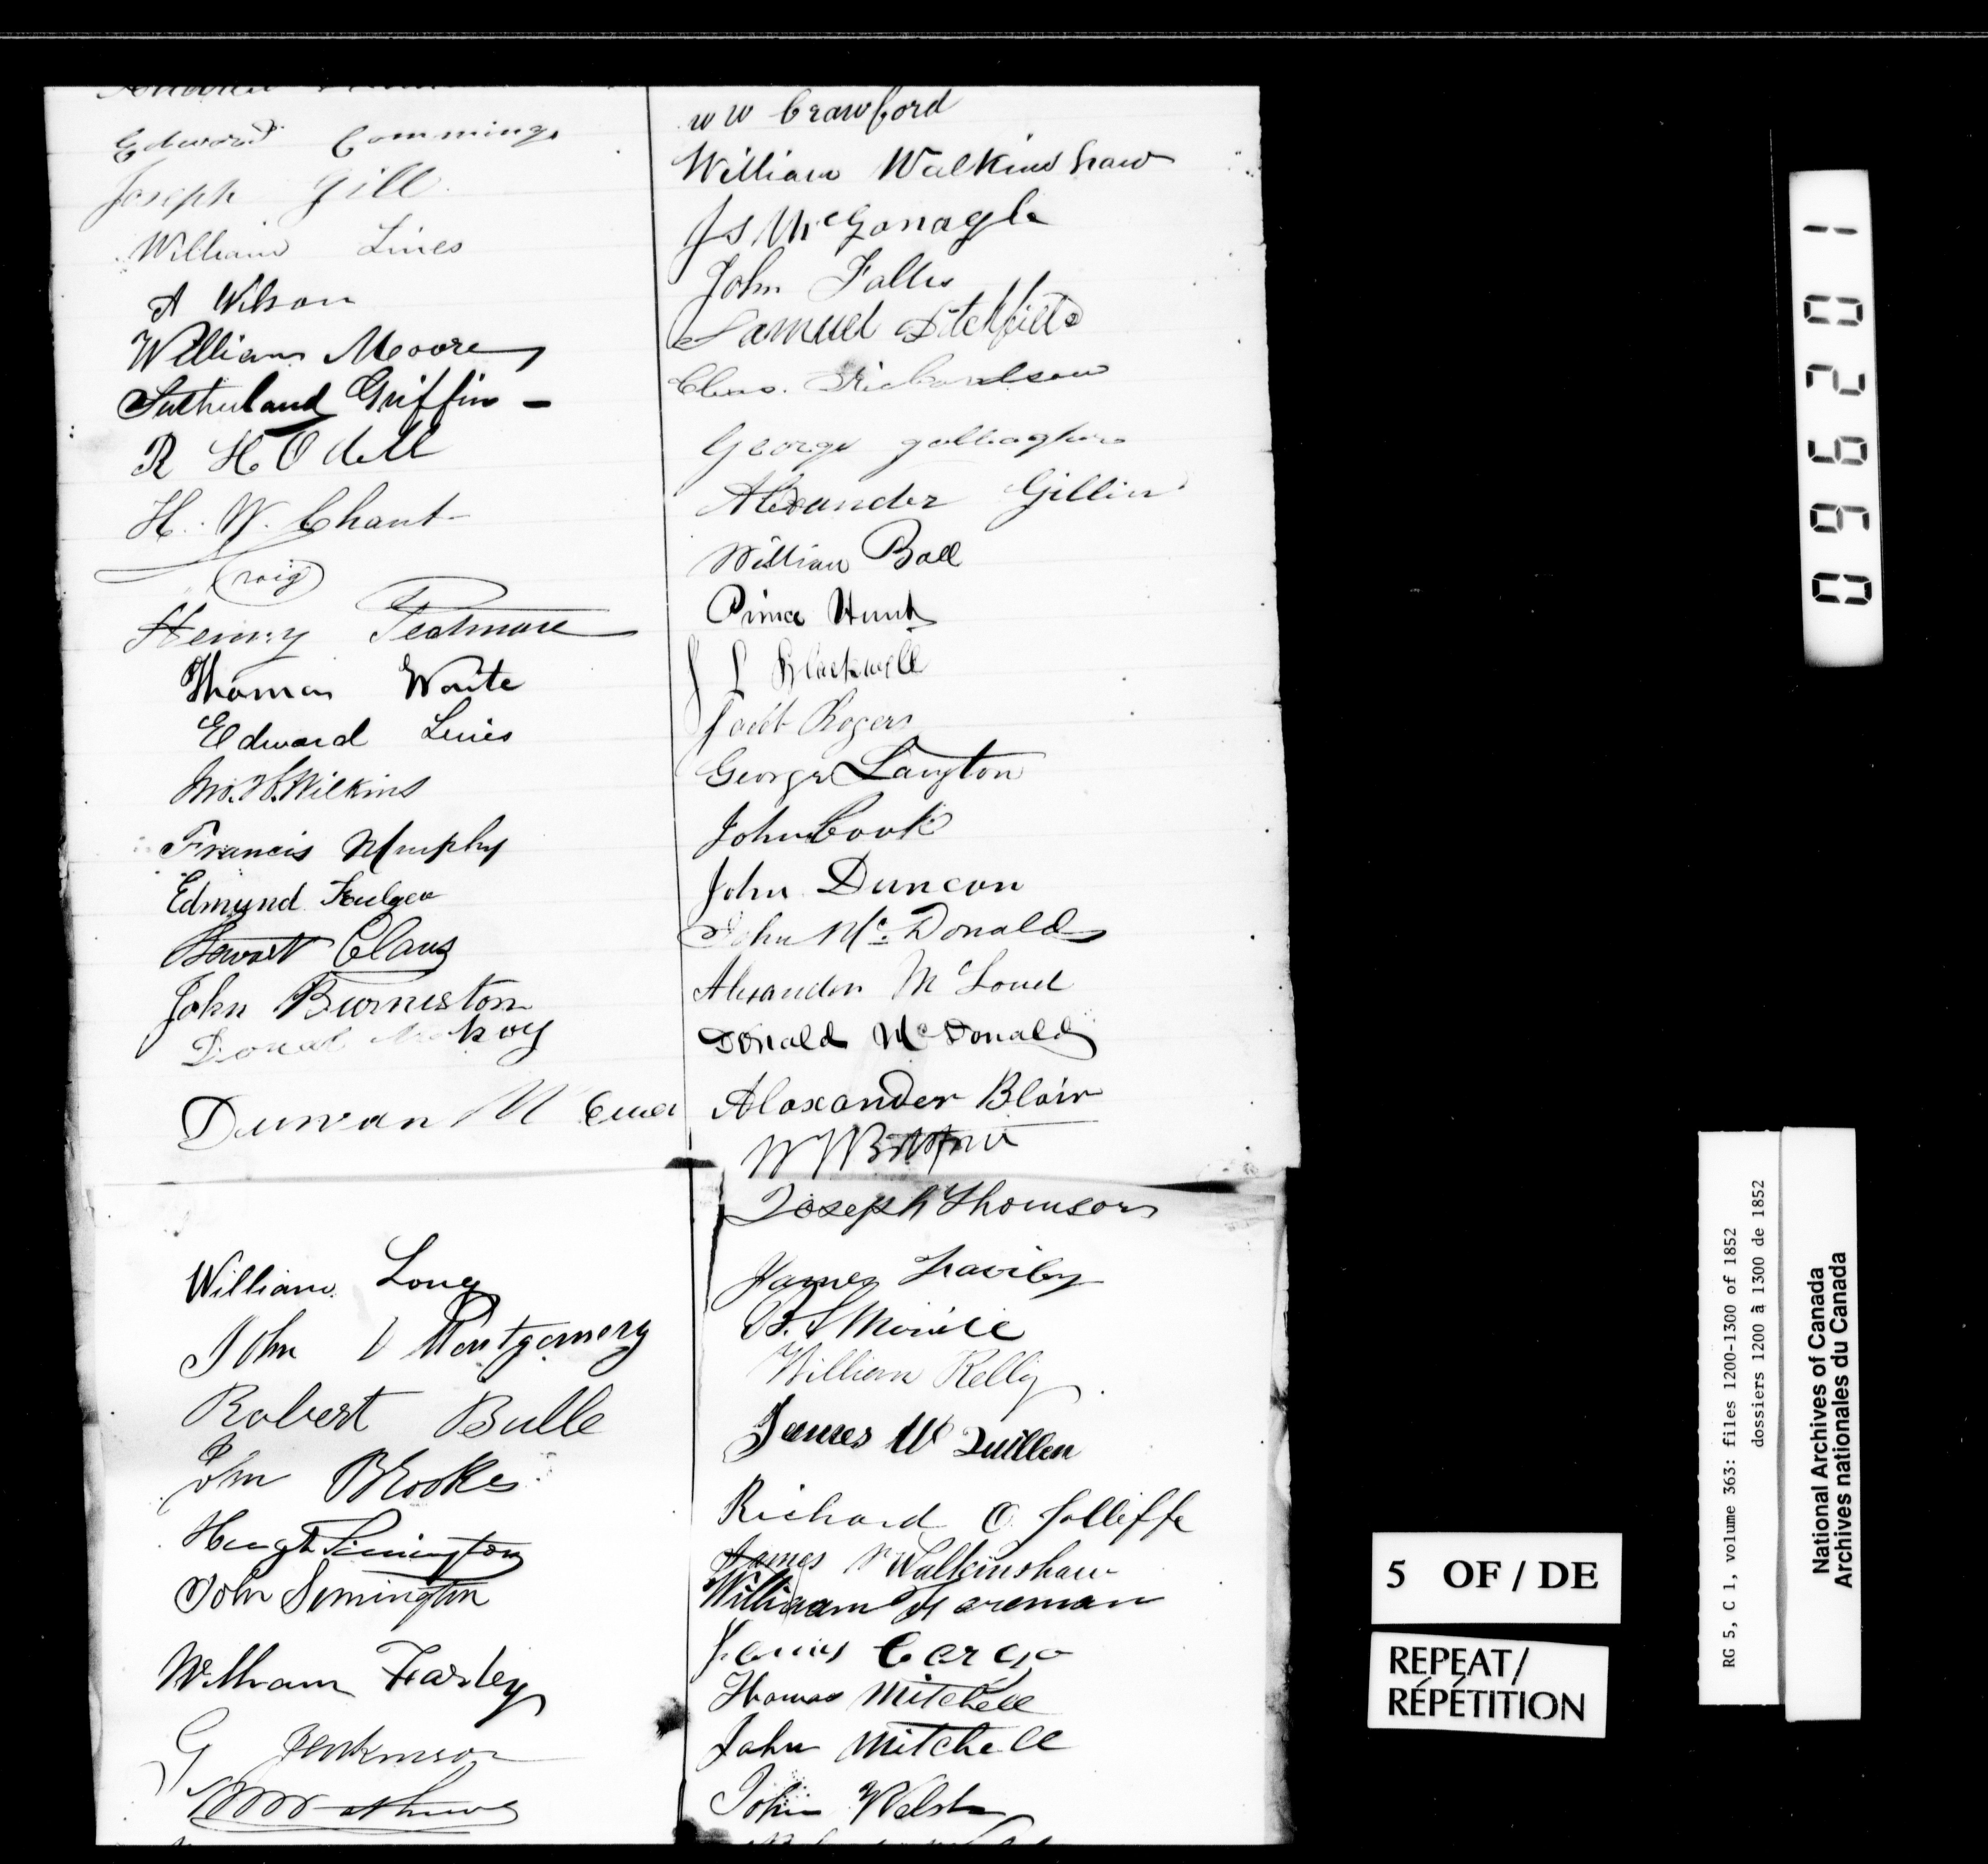 Edward Commings
Joseph Gill
William Lines
A Wilson
William Moore
Sutherland Griffin -
R H Odell
H. W. Chant
Craig
Henry
Thomas Waite
Edward Lines
Jno. W. Wilkins
Francis Murphy
Edmund
Stewart Claus
John Burniston
Duncan
William Long
John Montgomery
Robert Bulle
John Brookes
Hugh Simington
John Simington
William Farley
G Jenkinson
W W Crawford
William Walkinshaw
Js McGonagle
John Fallis
Samuel
Chas. Richardson
George gallagher
Alexander Gillin
William Ball
Prince Hunt
J L Blackwell
Rogers
George Langton
John Cook
John Duncan
John Mc. Donald
Alexander
Donald McDonald
Alexander Blair
Joseph Thomson
James
William Kelly
James Mc Quillen
Richard O. Jolliffe
James Walkinshaw
William Foreman
James Cargo
Thomas Mitchell
John Mitchell
John Welsh
09620 1
5 OF / DE
REPEAT/
RÉPÉTITION
RG 5, C 1, volume 363: files 1200-1300 of 1852
dossiers 1200 à 1300 de 1852
National Archives of Canada
Archives nationales du Canada